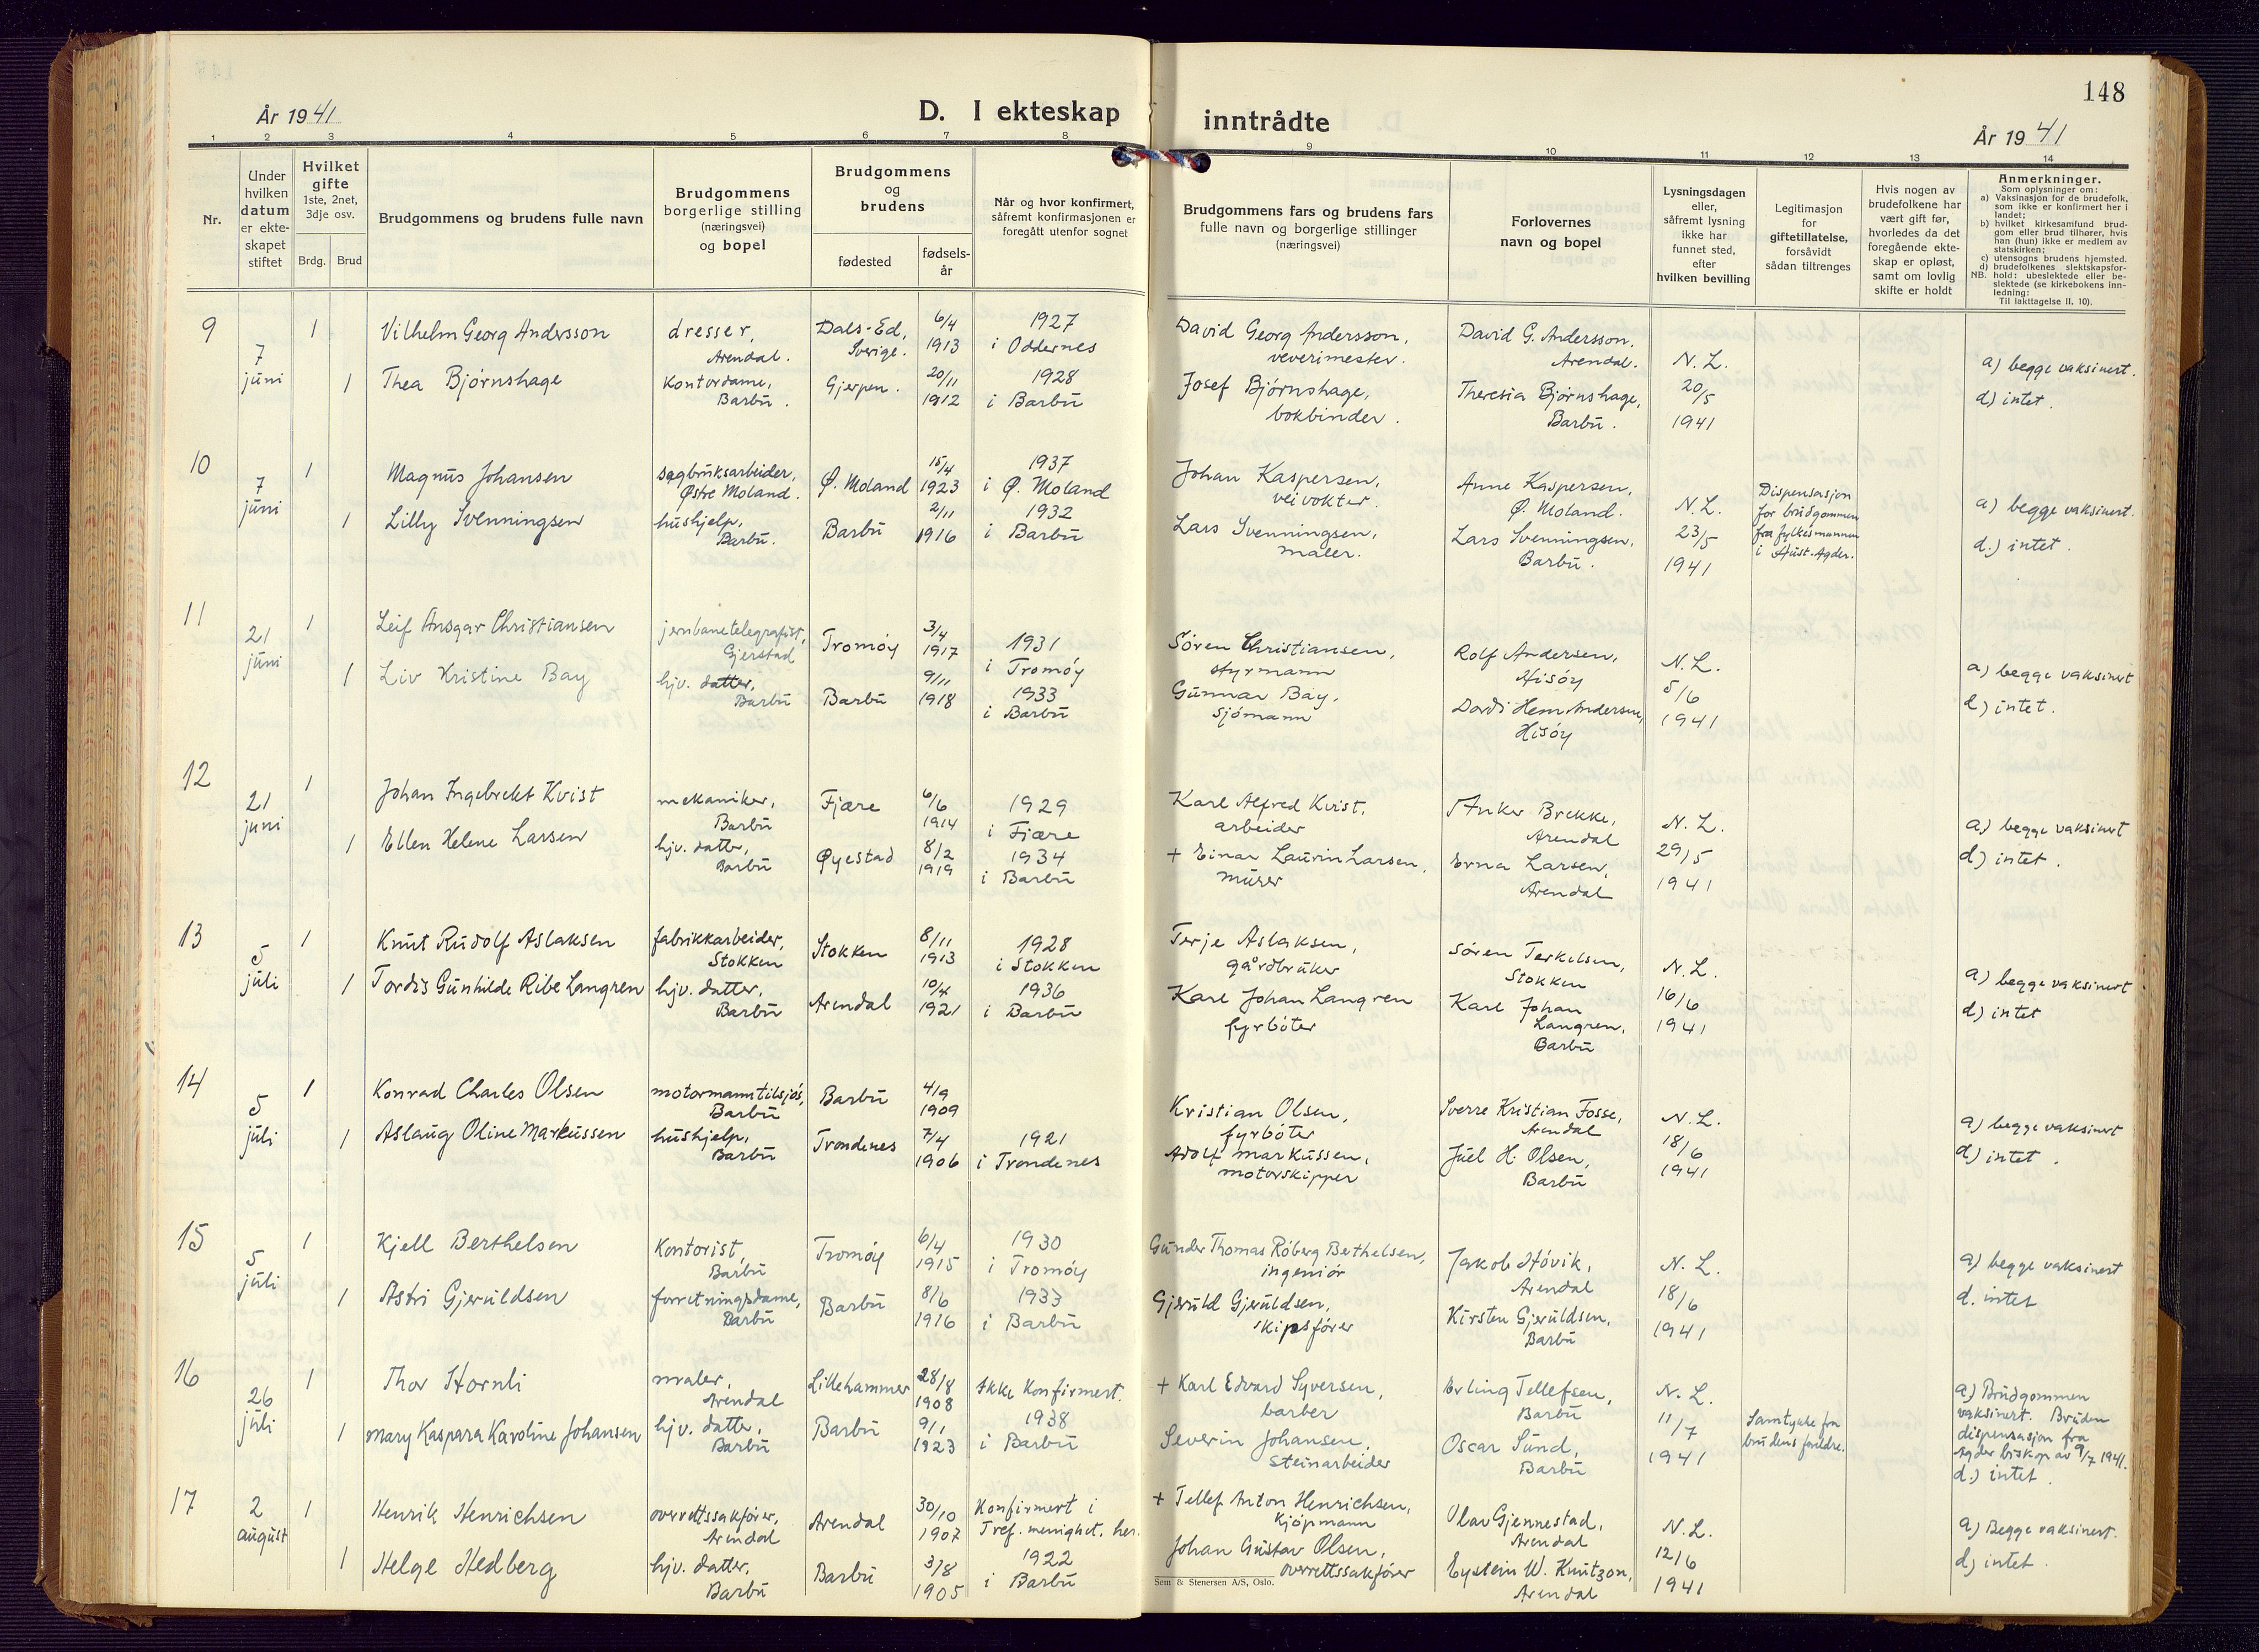 148
År 1941
D. I ekteskap
inntrådte
År 1941
1 2 3 4 5 6 7 8 9 10 11 12 13 14
Nr.
Under
hvilken
datum
er ekte-
skapet
stiftet
Hvilket
gifte
1ste, 2net,
3dje osv.
Brdg. Brud
Brudgommens og brudens fulle navn
Brudgommens
borgerlige stilling
(næringsvei)
og bopel
Brudgommens
og
brudens
fødested
fødsels-
år
Når og hvor konfirmert,
såfremt konfirmasjonen er
foregått utenfor sognet
Brudgommens fars og brudens fars
fulle navn og borgerlige stillinger
(næringsvei)
Forlovernes
navn og bopel
Lysningsdagen
eller,
såfremt lysning
ikke har
funnet sted,
efter
hvilken bevilling
Legitimasjon
for
giftetillatelse,
forsåvidt
sådan tiltrenges
Hvis nogen av
brudefolkene har
vært gift før,
hvorledes da det
foregående ekte-
skap er opløst,
samt om lovlig
skifte er holdt
Anmerkninger.
Som oplysninger om:
a) Vaksinasjon for de brudefolk,
som ikke er konfirmert her i
landet;
b) hvilket kirkesamfund brud-
gom eller brud tilhører, hvis
han (hun) ikke er medlem av
statskirken;
c) utensogns brudens hjemsted.
d) brudefolkenes slektskapsfor-
NB. hold: ubeslektede eller be-
slektede (se kirkebokens inn-
ledning:
Til iakttagelse II. 10).
9
7
juni
1
Vilhelm Georg Andersson
dresser,
Arendal.
Dals-Ed,
Sverige.
6/4
1913
1927
i Oddernes
David Georg Andersson,
veverimester.
David G. Andersson.
Arendal.
1
Thea Bjørnshage
Kontordame,
Barbu.
Gjerpen.
20/11
1912
1928
i Barbu
Josef Bjørnshage,
bokbinder.
Theresia Bjørnshage,
Barbu.
N. L.
20/5
1941
a) begge vaksinert.
d) intet.
10
7
juni
1
Magnus Johansen
sagbruksarbeider,
Østre Moland.
Ø. Moland
15/4
1923
1937
i Ø. Moland
Johan Kaspersen,
veivokter.
Anne Kaspersen,
Ø. Moland.
1
Lilly Svenningsen
hushjelp,
Barbu.
Barbu
2/11
1916
1932
i Barbu
Lars Svenningsen,
maler.
Lars Svenningsen,
Barbu.
N. L.
23/5
1941
Dispensasjon
for brudgommen
fra fylkesmannen
i Aust-Agder.
a) begge vaksinert.
d.) intet.
11
21
juni
1
Leif Ansgar Christiansen
jernbanetelegrafist,
Gjerstad
Tromøy
3/4
1917
1931
i Tromøy
Søren Christiansen,
styrmann
Rolf Andersen,
Hisøy
1
Liv Kristine Bay
hjv. datter,
Barbu
Barbu
9/11
1918
1933
i Barbu
Gunnar Bay,
sjømann
Andersen,
Hisøy
N. L.
5/6
1941
a) begge vaksinert
d) intet.
12
21
juni
1
Johan Ingebrekt Kvist
mekaniker,
Barbu
Fjære
6/6
1914
1929
i Fjære
Karl Alfred Kvist,
arbeider
Anker Brekke,
Arendal
1
Ellen Helene Larsen
hjv. datter,
Barbu
Øyestad
8/2
1919
1934
i Barbu
+ Einar Laurin Larsen,
murer
Erna Larsen,
Arendal
N. L.
29/5
1941
a) begge vaksinert
d) intet.
13
5
juli
1
Knut Rudolf Aslaksen
fabrikkarbeider,
Stokken
Stokken
8/11
1913
1928
i Stokken
Terje Aslaksen,
gårdbruker
Søren Terkelsen,
Stokken
1
Tordis Gunhilde Ribe Langren
hjv. datter,
Barbu
Arendal
10/4
1921
1936
i Barbu
Karl Johan Langren
fyrbøter
Karl Johan
Langren,
Barbu
N. L.
16/6
1941
a) begge vaksinert
d) intet
14
5
juli
1
Konrad Charles Olsen
motormann tilsjøs,
Barbu
Barbu
4/9
1909
Kristian Olsen,
fyrbøter
Sverre Kristian Fosse,
Arendal
1
Aslaug Oline Markussen
hushjelp,
Barbu
Trondenes
7/4
1906
1921
i Trondenes
Adolf Markussen,
motorskipper
Juel H. Olsen,
Barbu
N. L.
18/6
1941
a) begge vaksinert
d) intet.
15
5
juli
1
Kjell Berthelsen
Kontorist,
Barbu
Tromøy
6/4
1915
1930
i Tromøy
Gunder Thomas Røberg Berthelsen,
ingeniør
Jakob Høvik,
Arendal
1
Astri Gjeruldsen
forretningsdame,
Barbu
Barbu
8/6
1916
1933
i Barbu
Gjeruld Gjeruldsen,
skipsfører
Kirsten Gjeruldsen,
Barbu
N. L.
18/6
1941
a) begge vaksinert
d. intet
16
26
juli
1
Thor Hornli
maler,
Arendal
Lillehammer
28/8
1908
Ikke konfirmert.
+ Karl Edvard Syversen,
barber
Erling Tellefsen,
Barbu
1
Mary Kaspara Karoline Johansen
hjv. datter,
Barbu
Barbu
9/1
1923
1938
i Barbu
Severin Johansen,
Steinarbeider
Oscar Sund,
Barbu
N. L.
11/7
1941
Samtykke fra
brudens foreldre.
a) Brudgommen
vaksinert. Bruden
dispensasjon fra
Agder biskop av 9/7 1941.
d.) intet.
17
2
august
1
Henrik Henrichsen
overrettssakfører,
Arendal
Arendal
30/10
1907
Konfirmert i
Tref. menighet, her.
+ Tellef Anton Henrichsen,
Kjøpmann
Olav Gjennestad,
Arendal
1
Helge Hedberg
hjv. datter,
Barbu
Barbu
3/8
1905
1922
i Barbu
Johan Gustav Olsen,
overrettssakfører
Eystein W. Knutzon,
Arendal
N. L.
12/6
1941
a) Begge vaksinert.
d) intet.
Sem & Stenersen A/S, Oslo.